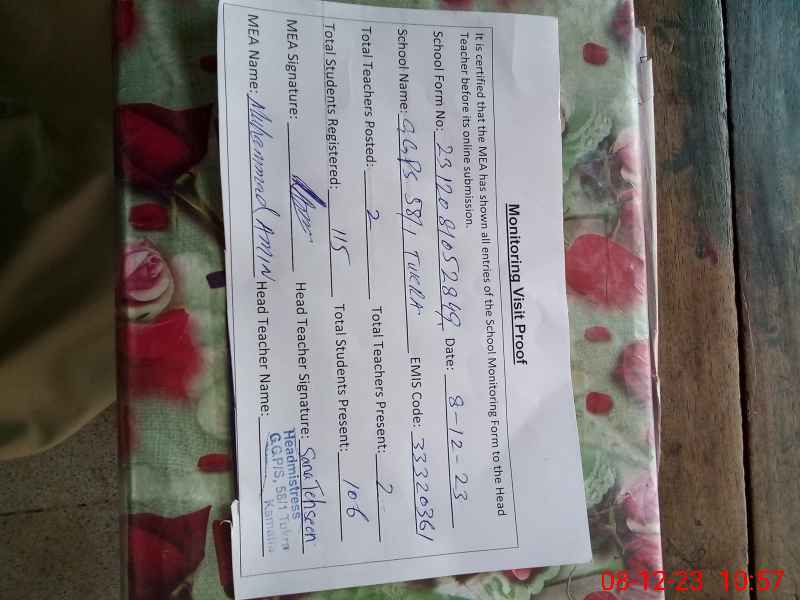 Monitoring Visit Proof
It is certified that the MEA has shown all entries of the School Monitoring Form to the Head
Teacher before its online submission.
School Form No: 2312081052849 Date: 8-12-23
School Name: GGPS 58/1 TUKRA EMIS Code: 33320361
Total Teachers Posted: 2 Total Teachers Present: 2
Total Students Registered: 115 Total Students Present: 106
MEA Signature: Head Teacher Signature: Sana Tehseen
MEA Name: Muhammad AMIN Head Teacher Name:
Headmistress
G.G.P/S, 58/1 Tukra
Kamalia
08-12-23 10:57